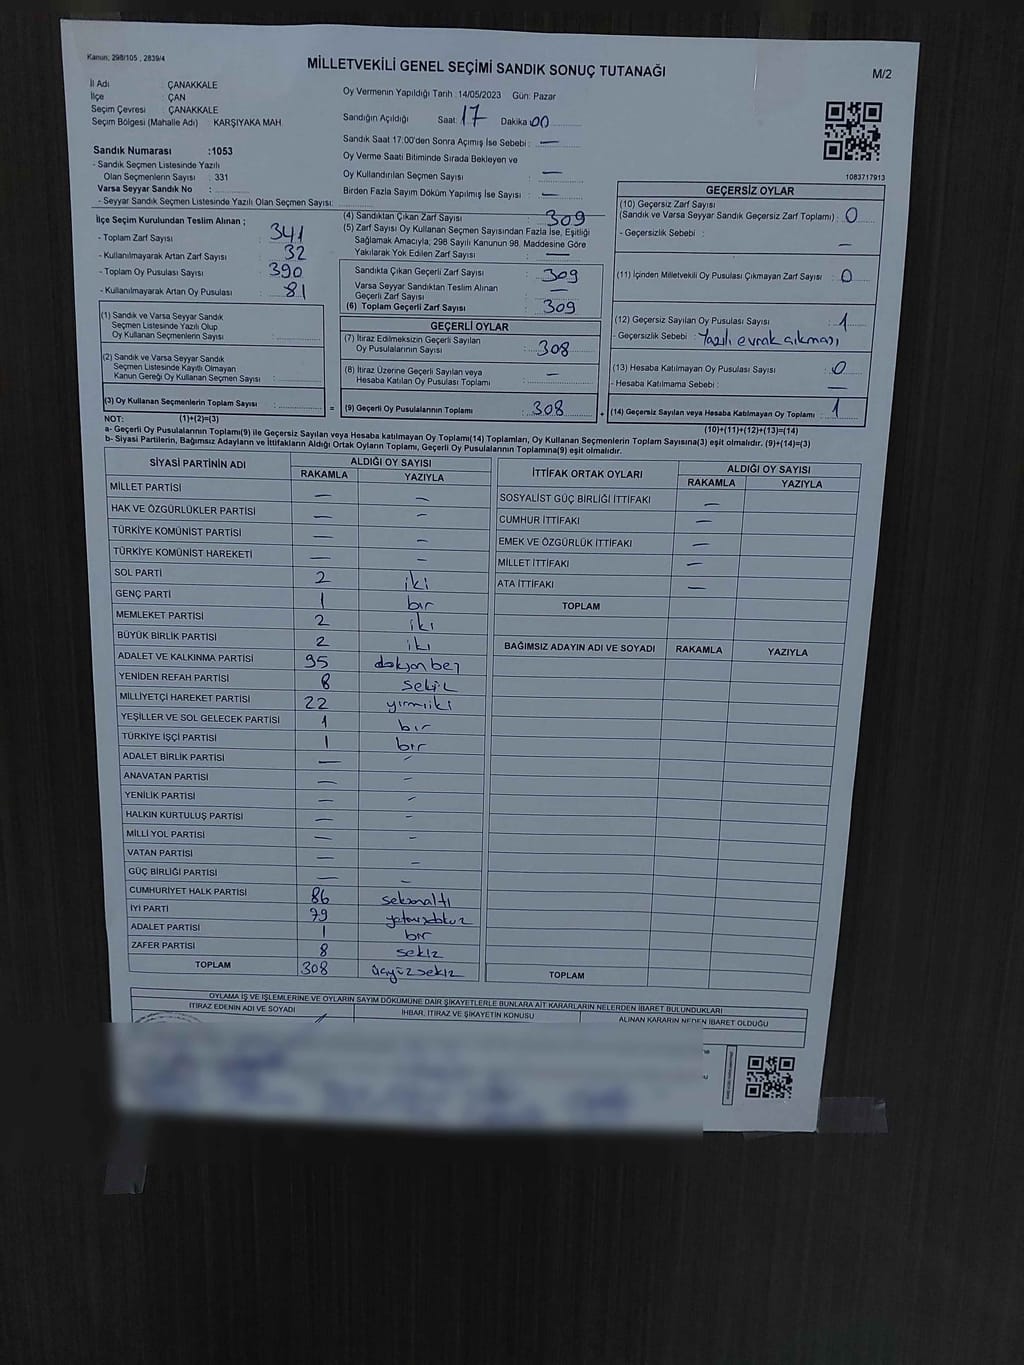 Kanun: 298/105 , 2839/4
MİLLETVEKİLİ GENEL SEÇİMİ SANDIK SONUÇ TUTANAĞI
M/2
İl Adı : ÇANAKKALE
İlçe : ÇAN
Seçim Çevresi : ÇANAKKALE
Seçim Bölgesi (Mahalle Adı) KARŞIYAKA MAH.
Sandık Numarası :1053
- Sandık Seçmen Listesinde Yazılı
Olan Seçmenlerin Sayısı : 331
Varsa Seyyar Sandık No :
- Seyyar Sandık Seçmen Listesinde Yazılı Olan Seçmen Sayısı:
Oy Vermenin Yapıldığı Tarih :14/05/2023 Gün: Pazar
Sandığın Açıldığı Saat: 17 Dakika: 00
Sandık Saat 17:00'den Sonra Açımış İse Sebebi : —
Oy Verme Saati Bitiminde Sırada Bekleyen ve
Oy Kullandırılan Seçmen Sayısı : —
Birden Fazla Sayım Döküm Yapılmış İse Sayısı : —
1083717913
İlçe Seçim Kurulundan Teslim Alınan ;
- Toplam Zarf Sayısı : 341
- Kullanılmayarak Artan Zarf Sayısı : 32
- Toplam Oy Pusulası Sayısı : 390
- Kullanılmayarak Artan Oy Pusulası : 81
(1) Sandık ve Varsa Seyyar Sandık
Seçmen Listesinde Yazılı Olup
Oy Kullanan Seçmenlerin Sayısı :
(2) Sandık ve Varsa Seyyar Sandık
Seçmen Listesinde Kayıtlı Olmayan
Kanun Gereği Oy Kullanan Seçmen Sayısı :
(3) Oy Kullanan Seçmenlerin Toplam Sayısı :
(4) Sandıktan Çıkan Zarf Sayısı : 309
(5) Zarf Sayısı Oy Kullanan Seçmen Sayısından Fazla İse, Eşitliği
Sağlamak Amacıyla; 298 Sayılı Kanunun 98. Maddesine Göre
Yakılarak Yok Edilen Zarf Sayısı : —
Sandıkta Çıkan Geçerli Zarf Sayısı : 309
Varsa Seyyar Sandıktan Teslim Alınan
Geçerli Zarf Sayısı : —
(6) Toplam Geçerli Zarf Sayısı : 309
GEÇERLİ OYLAR
(7) İtiraz Edilmeksizin Geçerli Sayılan
Oy Pusulalarının Sayısı : 308
(8) İtiraz Üzerine Geçerli Sayılan veya
Hesaba Katılan Oy Pusulası Toplamı : —
= (9) Geçerli Oy Pusulalarının Toplamı : 308
GEÇERSİZ OYLAR
(10) Geçersiz Zarf Sayısı
(Sandık ve Varsa Seyyar Sandık Geçersiz Zarf Toplamı) : 0
- Geçersizlik Sebebi : —
(11) İçinden Milletvekili Oy Pusulası Çıkmayan Zarf Sayısı : 0
(12) Geçersiz Sayılan Oy Pusulası Sayısı : 1
- Geçersizlik Sebebi : Yazılı evrak çıkması
(13) Hesaba Katılmayan Oy Pusulası Sayısı : 0
- Hesaba Katılmama Sebebi : —
+ (14) Geçersiz Sayılan veya Hesaba Katılmayan Oy Toplamı : 1
NOT: (1)+(2)=(3)
(10)+(11)+(12)+(13)=(14)
a- Geçerli Oy Pusulalarının Toplamı(9) ile Geçersiz Sayılan veya Hesaba katılmayan Oy Toplamı(14) Toplamları, Oy Kullanan Seçmenlerin Toplam Sayısına(3) eşit olmalıdır. (9)+(14)=(3)
b- Siyasi Partilerin, Bağımsız Adayların ve İttifakların Aldığı Ortak Oyların Toplamı, Geçerli Oy Pusulalarının Toplamına(9) eşit olmalıdır.
SİYASİ PARTİNİN ADI ALDIĞI OY SAYISI
RAKAMLA YAZIYLA
MİLLET PARTİSİ — —
HAK VE ÖZGÜRLÜKLER PARTİSİ — —
TÜRKİYE KOMÜNİST PARTİSİ — —
TÜRKİYE KOMÜNİST HAREKETİ — —
SOL PARTİ 2 iki
GENÇ PARTİ 1 bir
MEMLEKET PARTİSİ 2 iki
BÜYÜK BİRLİK PARTİSİ 2 iki
ADALET VE KALKINMA PARTİSİ 95 doksanbeş
YENİDEN REFAH PARTİSİ 8 sekiz
MİLLİYETÇİ HAREKET PARTİSİ 22 yirmiiki
YEŞİLLER VE SOL GELECEK PARTİSİ 1 bir
TÜRKİYE İŞÇİ PARTİSİ 1 bir
ADALET BİRLİK PARTİSİ — —
ANAVATAN PARTİSİ — —
YENİLİK PARTİSİ — —
HALKIN KURTULUŞ PARTİSİ — —
MİLLİ YOL PARTİSİ — —
VATAN PARTİSİ — —
GÜÇ BİRLİĞİ PARTİSİ — —
CUMHURİYET HALK PARTİSİ 86 seksenaltı
İYİ PARTİ 79 yetmişdokuz
ADALET PARTİSİ 1 bir
ZAFER PARTİSİ 8 sekiz
TOPLAM 308 üçyüzsekiz
İTTİFAK ORTAK OYLARI ALDIĞI OY SAYISI
RAKAMLA YAZIYLA
SOSYALİST GÜÇ BİRLİĞİ İTTİFAKI —
CUMHUR İTTİFAKI —
EMEK VE ÖZGÜRLÜK İTTİFAKI —
MİLLET İTTİFAKI —
ATA İTTİFAKI —
TOPLAM
BAĞIMSIZ ADAYIN ADI VE SOYADI RAKAMLA YAZIYLA
TOPLAM
OYLAMA İŞ VE İŞLEMLERİNE VE OYLARIN SAYIM DÖKÜMÜNE DAİR ŞİKAYETLERLE BUNLARA AİT KARARLARIN NELERDEN İBARET BULUNDUKLARI
İTİRAZ EDENİN ADI VE SOYADI İHBAR, İTİRAZ VE ŞİKAYETİN KONUSU ALINAN KARARIN NEDEN İBARET OLDUĞU